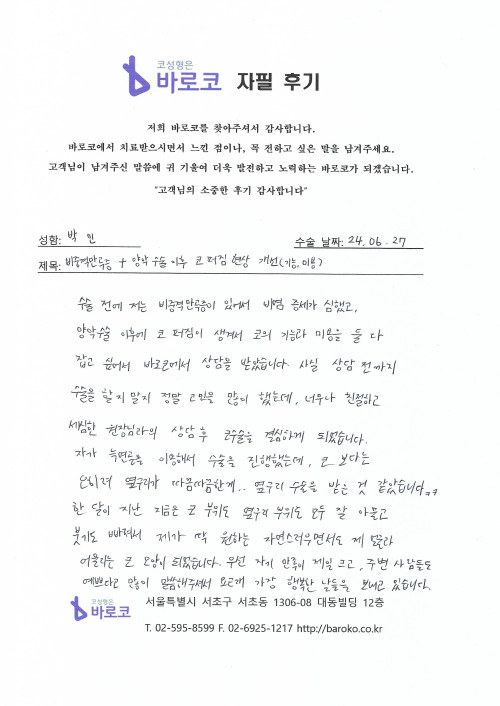 코성형은
바로코 자필 후기
저희 바로코를 찾아주셔서 감사합니다.
바로코에서 치료받으시면서 느낀 점이나, 꼭 전하고 싶은 말을 남겨주세요.
고객님이 남겨주신 말씀에 귀 기울여 더욱 발전하고 노력하는 바로코가 되겠습니다.
"고객님의 소중한 후기 감사합니다"
성함: 박 민 수술 날짜: 24.06.27
제목: 비중격만곡증 + 양악수술 이후 코 퍼짐 현상 개선(기능,미용)
수술 전에 저는 비중격만곡증이 있어서 비염 증세가 심했고,
양악수술 이후에 코 퍼짐이 생겨서 코의 기능과 미용을 둘 다
잡고 싶어서 바로코에서 상담을 받았습니다. 사실 상담 전까지
수술을 할지 말지 정말 고민을 많이 했는데, 너무나 친절하고
세심한 원장님과의 상담 후 코수술을 결심하게 되었습니다.
자가 늑연골을 이용해서 수술을 진행했는데, 코 보다는
오히려 옆구리가 따끔따끔한게.. 옆구리 수술을 받은 것 같았습니다ㅋㅋ
한 달이 지난 지금은 코 부위도 옆구리 부위도 모두 잘 아물고
붓기도 빠져서 제가 딱 원하는 자연스러우면서도 제 얼굴과
어울리는 코 모양이 되었습니다. 우선 자기 만족이 제일 크고, 주변 사람들도
예쁘다고 많이 말씀해주셔서 요즘 가장 행복한 날들을 보내고 있습니다.
코성형은
바로코 서울특별시 서초구 서초동 1306-08 대동빌딩 12층
T. 02-595-8599 F. 02-6925-1217 http://baroko.co.kr